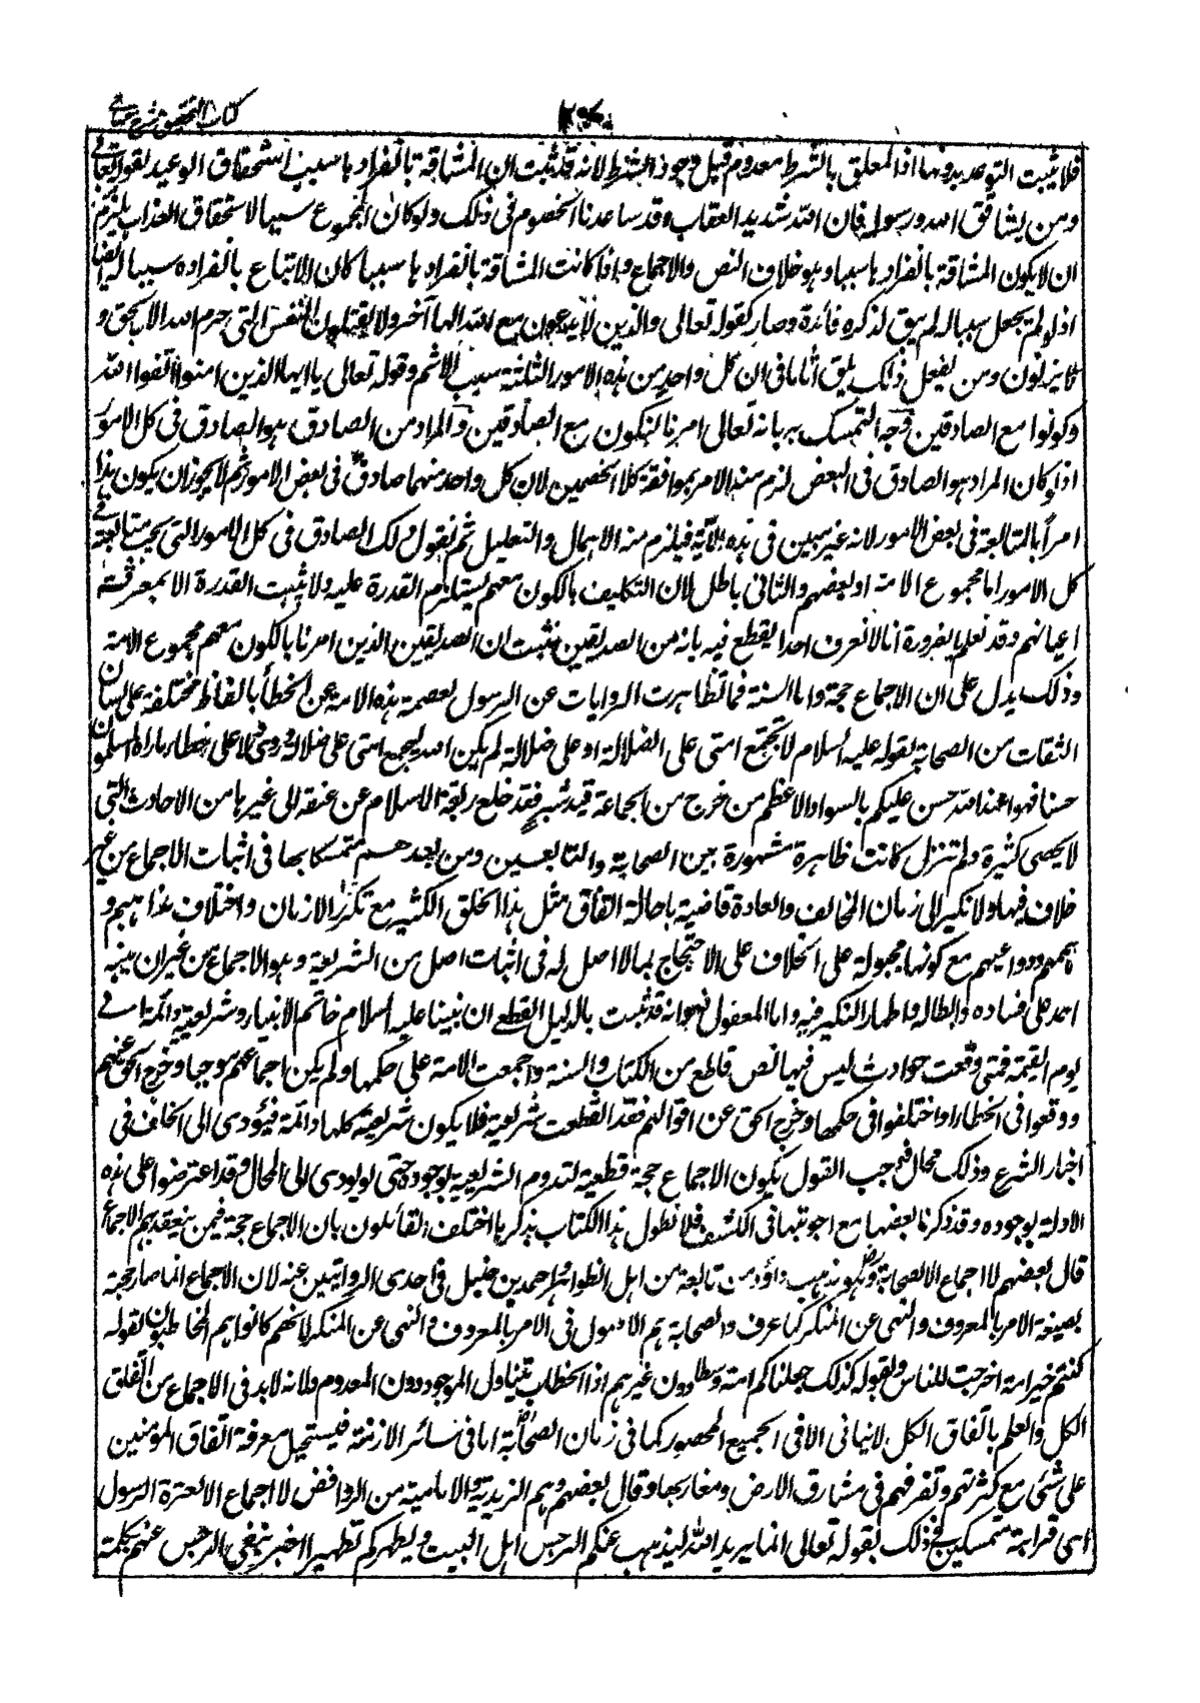 كتاب التحقيق شرح حسامي
فلا يثبت التوعد بدونهما اذ المعلق بالشرط معدوم قبل وجود الشرط لانه قد ثبت ان المشاقة بانفرادها سبب استحقاق الوعيد لقوله تعالى
ومن يشاقق الله ورسوله فان الله شديد العقاب وقد ساعدنا الخصوم فى ذلك ولو كان المجموع سببا لاستحقاق العذاب يلزم
ان لا يكون المشاقة بانفرادها سببا وهو خلاف النص والاجماع واذا كانت المشاقة بانفرادها سببا كان الاتباع بانفراده سببا له ايضا
اذ لو لم يجعل سببا له لم يبق لذكره فائدة وصار كقوله تعالى والذين لا يدعون مع الله الها آخر ولا يقتلون النفس التى حرم الله الا بالحق و
لا يزنون ومن يفعل ذلك يلق أثاما فى ان كل واحد من هذه الامور الثلثة سبب للاثم وقوله تعالى يا ايها الذين امنوا اتقوا الله
وكونوا مع الصادقين وجه التمسك به انه تعالى امرنا بالكون مع الصادقين والمراد من الصادق هو الصادق فى كل الامور
اذ لو كان المراد هو الصادق فى البعض لزم منه الامر بموافقة كلا الخصمين لان كل واحد منهما صادق فى بعض الامور ثم لا يجوز ان يكون هذا
امرا بالمتابعة فى بعض الامور لانه غير مبين فى هذه الآية فيلزم منه الاهمال والتعطيل ثم نقول ذلك الصادق فى كل الامور التى يجب متابعته فى
كل الامور اما مجموع الامة او بعضهم والثانى باطل لان التكليف بالكون معهم يستلزم القدرة عليه ولا يثبت القدرة الا بمعرفة
اعيانهم وقد نعلم بالضرورة انا لا نعرف احدا يقطع فيه بانه من الصديقين فثبت ان الصديقين الذين امرنا بالكون معهم مجموع الامة
وذلك يدل على ان الاجماع حجة واما السنة فما تظاهرت الروايات عن الرسول لعصمة هذه الامة عن الخطأ بالفاظ مختلفة على لسان
الثقات من الصحابة لقوله عليه السلام لا تجتمع امتى على الضلالة او على ضلالة لم يكن الله ليجمع امتى على ضلالة وروى ولا على خطاء ما راه المسلمون
حسنا فهو عند الله حسن عليكم بالسواد الاعظم من خرج من الجماعة قيد شبر فقد خلع ربقة الاسلام عن عنقه الى غيرها من الاحاديث التى
لا يحصى كثيرة ولم تزل كانت ظاهرة مشهورة بين الصحابة والتابعين ومن بعدهم متمسكا بها فى اثبات الاجماع من غير
خلاف فيها ولا نكير الى زمان المخالف والعادة قاضية باحالة اتفاق مثل هذا الخلق الكثير مع تكرر الازمان واختلاف مذاهبهم و
هممهم ودواعيهم مع كونها مجبولة على الخلاف على الاحتجاج بما لا اصل له فى اثبات اصل من الشريعة وهو الاجماع من غير ان ينبه
احد على فساده وابطاله واظهار النكير فيه واما المعقول فهو انه قد ثبت بالدليل القطعى ان نبينا عليه السلام خاتم الانبياء وشريعته دائمة الى
يوم القيمة فمتى وقعت حوادث ليس فيها نص قاطع من الكتاب والسنة واجمعت الامة على حكمها ولم يكن اجماعهم موجبا وخرج الحق عنهم
ووقعوا فى الخطاء او اختلفوا فى حكمها وخرج الحق عن اقوالهم فقد انقطعت شريعته فلا يكون شريعته كلها دائمة فيؤدى الى الخلف فى
اخبار الشرع وذلك محال فوجب القول بكون الاجماع حجة قطعية لتدوم الشريعة بوجوده حتى لو يودى الى المحال وقد اعترضوا على هذه
الادلة بوجوده وقد ذكرنا بعضها مع اجوبتها فى الكشف فلا نطول هذا الكتاب بذكرها اختلف القائلون بان الاجماع حجة فيمن ينعقد بهم الاجماع
قال بعضهم لا اجماع الا للصحابة وهو مذهب داؤد ومن تابعه من اهل الظواهر واحمد بن حنبل فى احدى الروايتين عنه لان الاجماع انما صار حجة
بصيغة الامر بالمعروف والنهى عن المنكر كما عرف والصحابة هم الاصول فى الامر بالمعروف والنهى عن المنكر لانهم كانوا هم المخاطبون لقوله
كنتم خير امة اخرجت للناس ولقوله كذلك جعلناكم امة وسطا دون غيرهم اذ الخطاب يتناول الموجود دون المعدوم ولانه لا بد فى الاجماع من اتفاق
الكل والعلم باتفاق الكل لا يتاتى الا فى الجميع المحصور كما فى زمان الصحابة اما فى سائر الازمنة فيستحيل معرفة اتفاق المؤمنين
على شئ مع كثرتهم وتفرقهم فى مشارق الارض ومغاربها وقال بعضهم وهم الزيدية والامامية من الروافض لا اجماع الا لعترة الرسول
اى قرابته متمسكين فى ذلك بقوله تعالى انما يريد الله ليذهب عنكم الرجس اهل البيت ويطهركم تطهيرا اخبر بنفى الرجس عنهم بكلمة